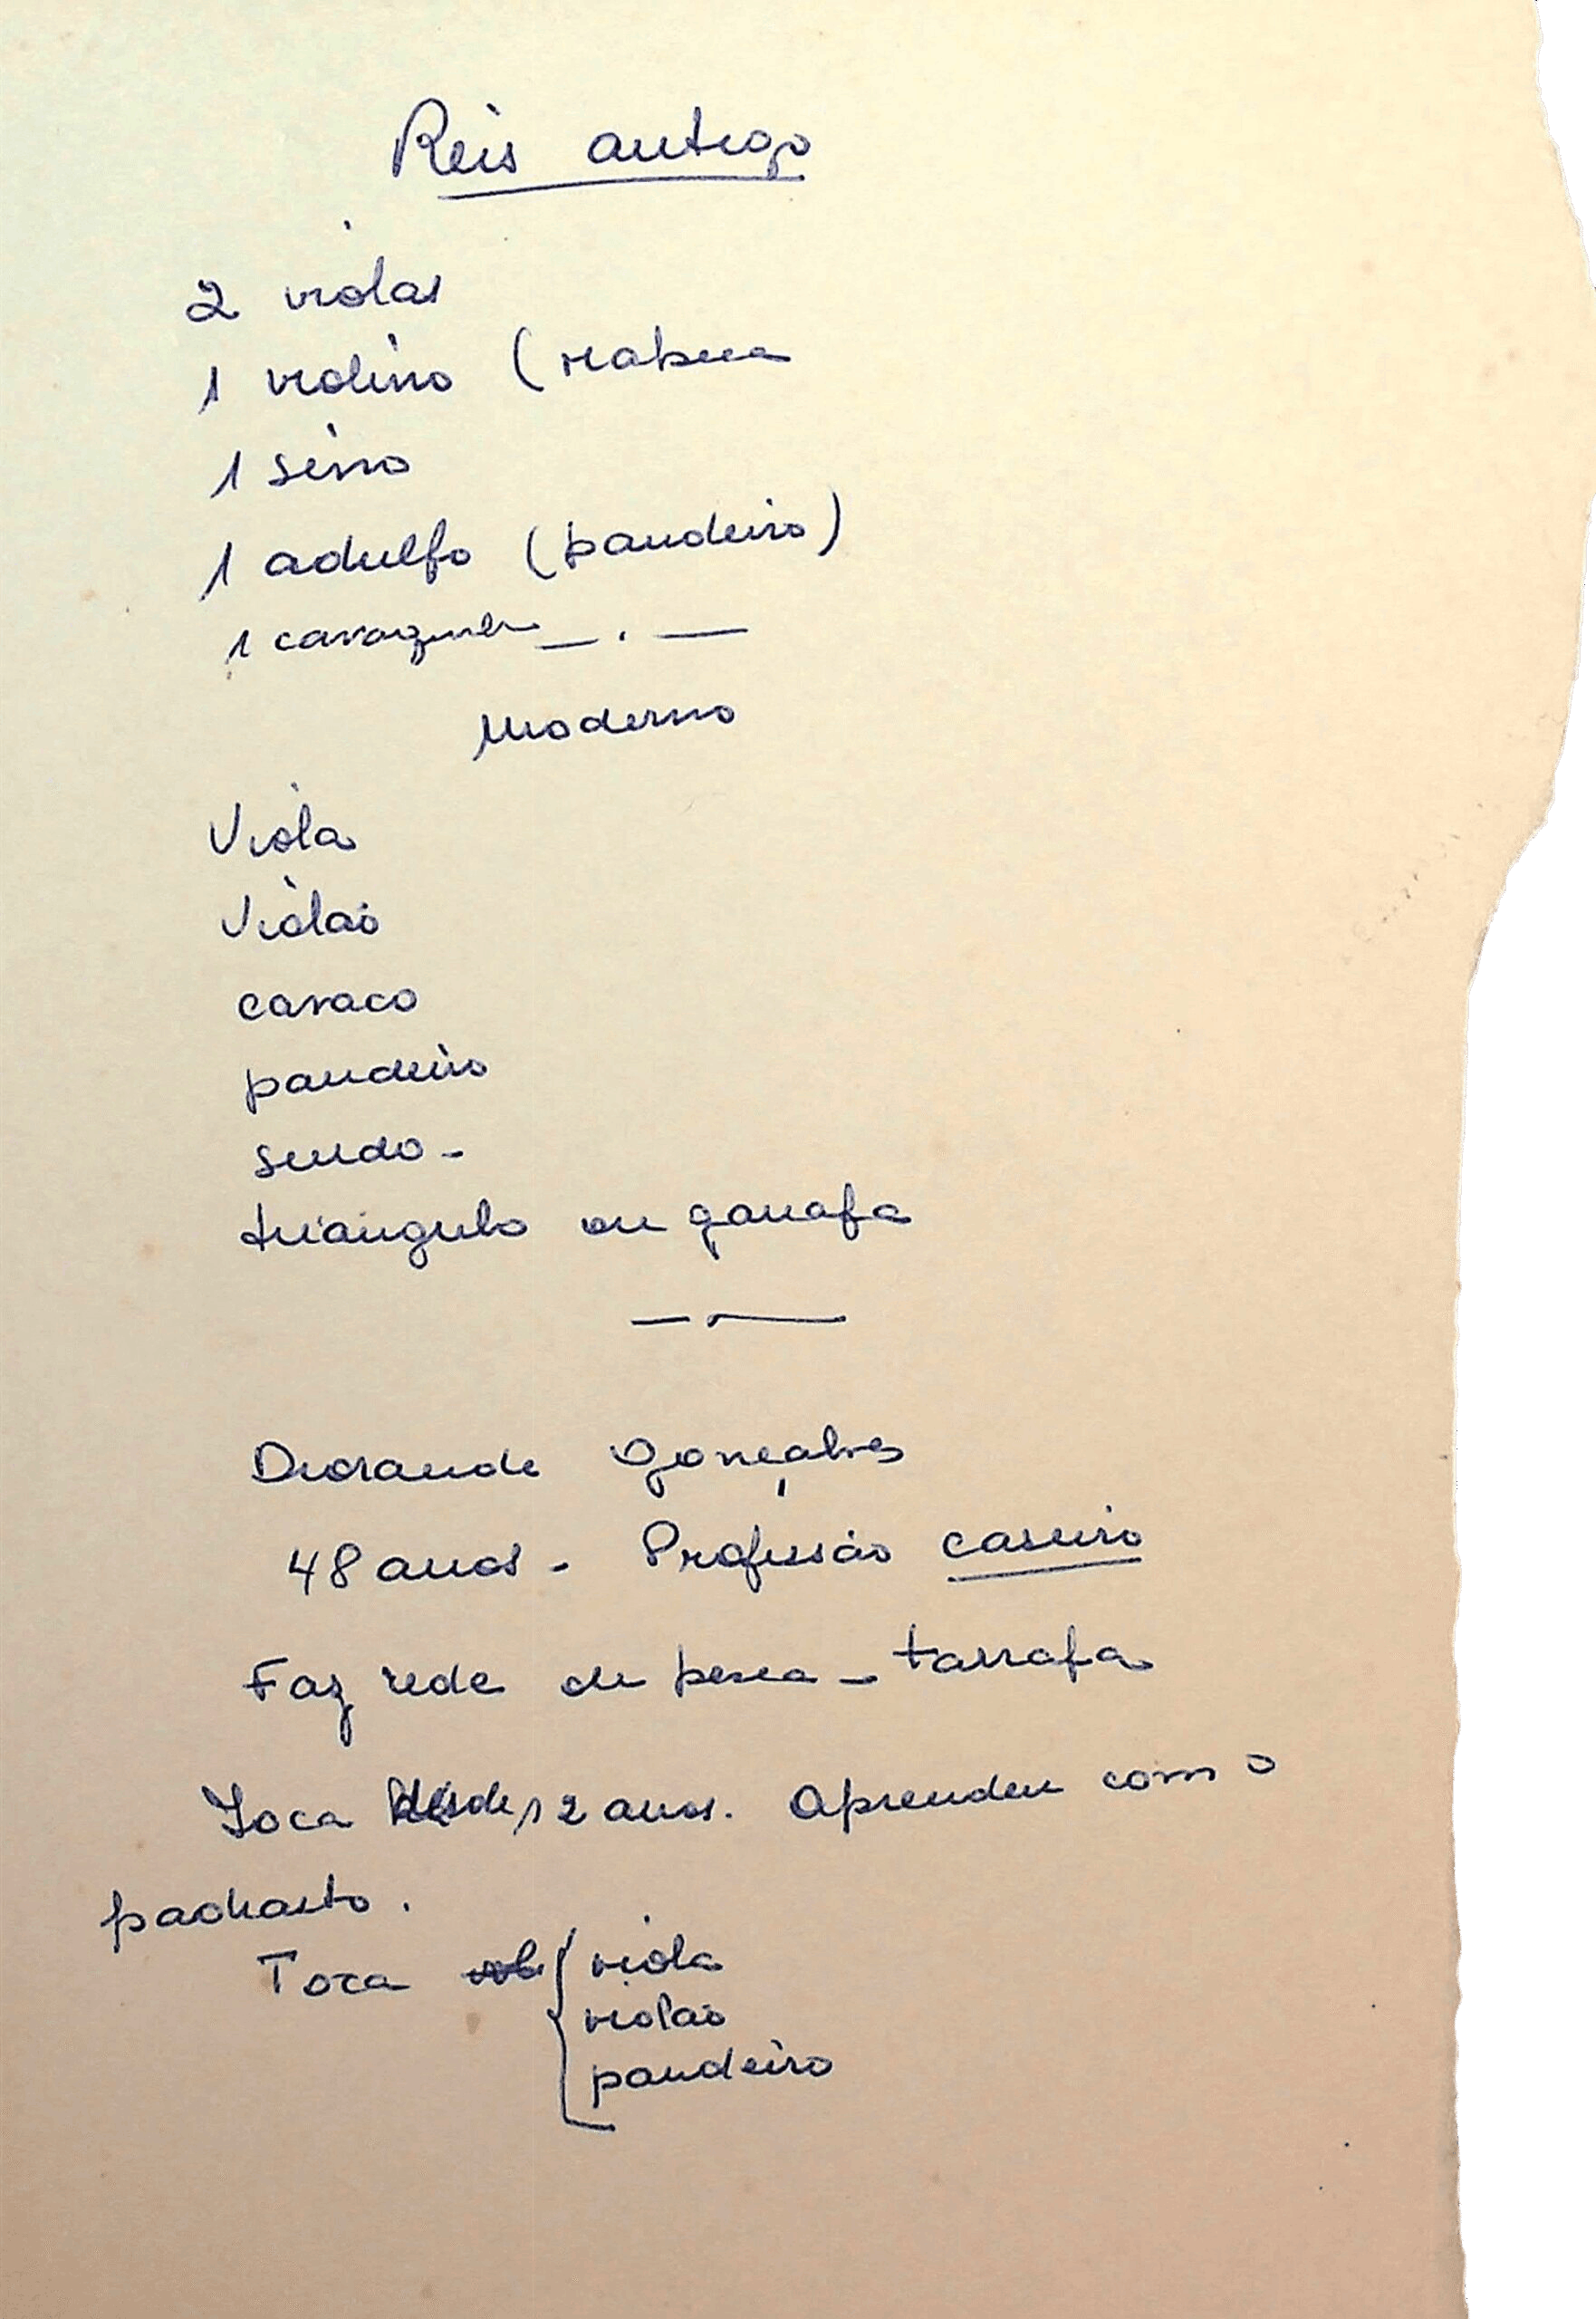 Reis antigo
2 violas
1 violino (rabeca
1 sino
1 adulfo (pandeiro)
1 cavaquinho _ . _
Moderno
Viola
Violão
cavaco
pandeiro
surdo -
triangulo ou garrafa
Gonçalves
48 anos - Profissão caseiro
Faz rede de pesca - tarrafa
Toca desde 12 anos. Aprendeu com o
padrasto.
Toca { viola
violão
pandeiro